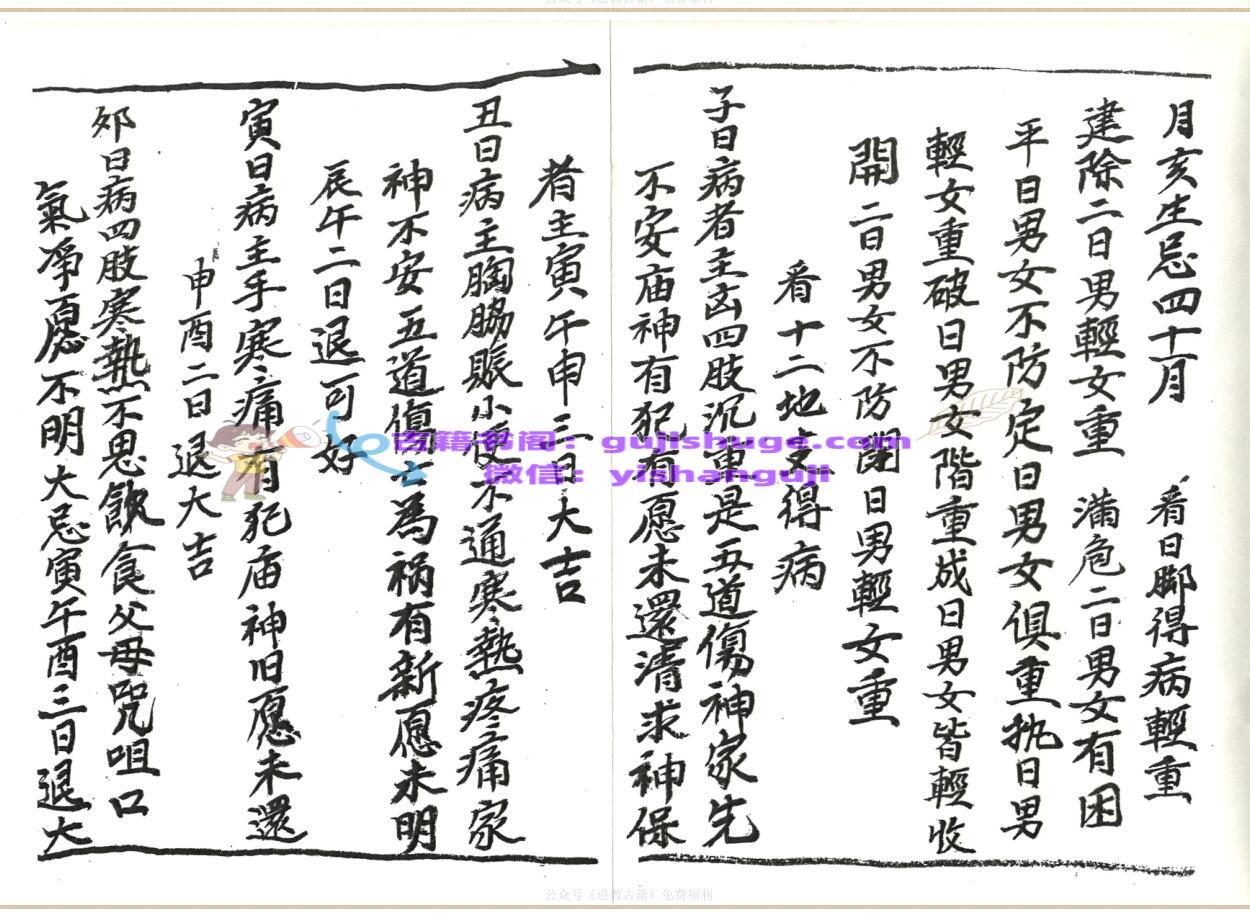 公众号《道教古籍》免费福利
月亥生忌四十月 看日腳得病輕重
建除二日男輕女重 滿危二日男女有困
平日男女不防定日男女俱重执日男
輕女重破日男女階重成日男女皆輕收
開二日男女不防閉日男輕女重
看十二地支得病
子日病者主凶四肢沉重是五道傷神家先
不安庙神有犯有愿未還清求神保
者主寅午申三日大吉
丑日病主胸脇賬小便不通寒熱疼痛家
神不安五道傷亡為祸有新愿未明
辰午二日退可好
寅日病主手寒痛有犯庙神旧愿未還
申酉二日退大吉
夘日病四肢寒熱不思飲食父母咒咀口
氣凈愿不明大忌寅午酉三日退大
古籍书阁：gujishuge.com
微信：yishanguji
公众号《道教古籍》免费福利